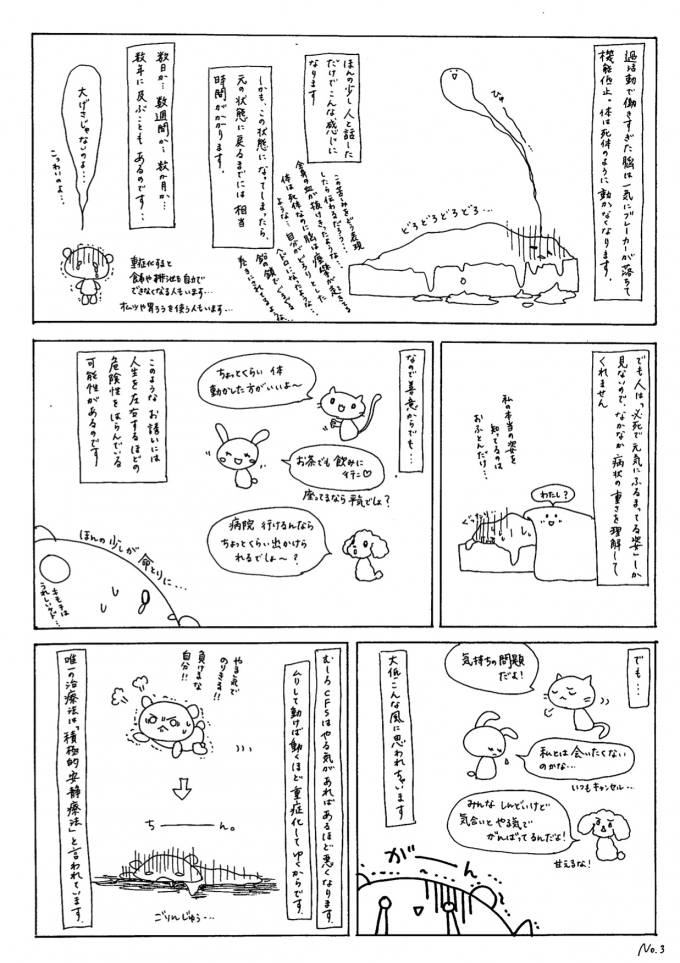 過活動で働きすぎた脳は一気にブレーカーが落ちて
機能停止。体は死体のように動かなくなります。
ひゅ〜
どろどろどろどろ…
ほんの少し人と話した
だけでこんな感じに
なります
この苦しみをどう表現
したら伝わるだろう…
全身の血が抜けきったような、
体は死体なのに脳は痙攣が走ってる
ような…自分がどろりとした
ヘドロになったような…
鉛の鎖でぐるぐる
巻きにされてるような…
しかも、この状態になってしまったら
元の状態に戻るまでには相当
時間がかかります。
数日か…数週間か…数か月か…
数年に及ぶことも あるのです…
大げさじゃないのよ…
こっわいのよ…
重症化すると
食事や排泄も自力で
できなくなる人もいます…
オムツや胃ろうを使う人もいます…
でも人は「必死で元気にふるまってる姿」しか
見ないので、なかなか病状の重さを理解して
くれません
私の本当の姿を
知ってるのは
おふとんだけ…
わたし?
ぐったり…
なので善意からでも…
ちょっとくらい 体
動かした方がいいよ〜
お茶でも飲みに
行こ♡
座ってるなら平気でしょ?
病院 行けるんなら
ちょっとくらい出かけら
れるでしょ〜?
このような お誘いには
人生を左右するほどの
危険性をはらんでいる
可能性があるのです
ほんの少しが 命とりに…
キモチは
うれしいケド…
でも…
気持ちの問題
だよ!
私とは 会いたくない
のかな…
いつもキャンセル…
みんな しんどいけど
気合いとやる気で
がんばってるんだよ!
甘えるな!
大低こんな風に思われちゃいます
が――ん
むしろCFSはやる気があればあるほど悪くなります。
ムリして動けば動くほど重症化してゆくからです。
やる気で
のりきま!!
負けるな
自分!!
ち――ん。
ごりんじゅう…
唯一の治療法は「積極的安静療法」と言われています。
No.3